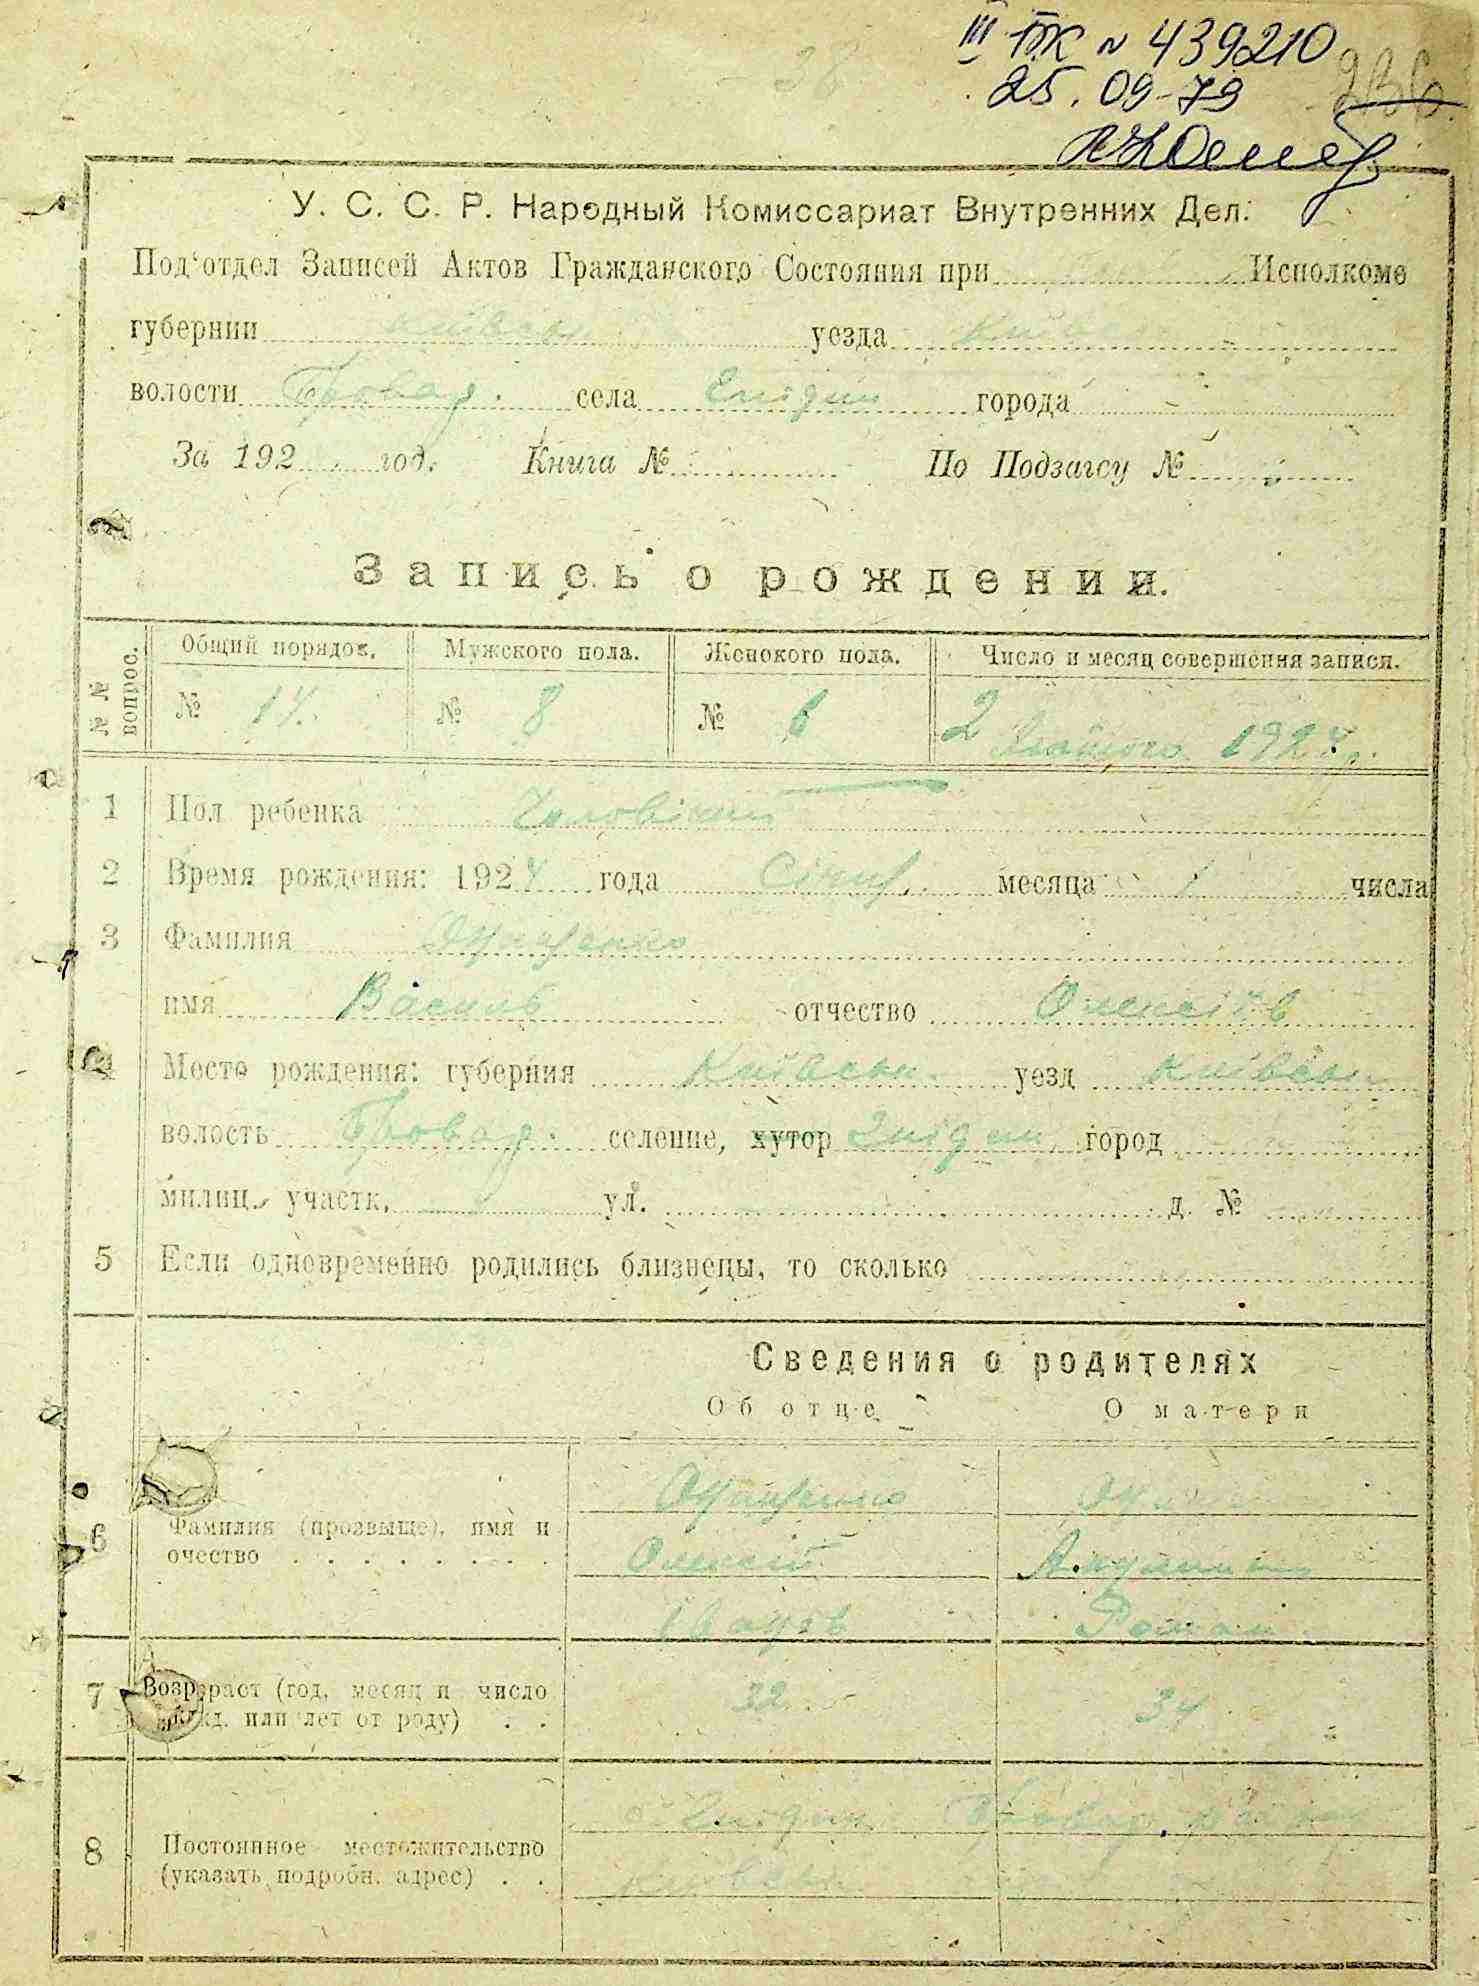 III ТК № 439210
25.09-79
236
У. С. С. Р. Народный Комиссариат Внутренних Дел.
Под'отдел Записей Актов Гражданского Состояния при Исполкоме
губернии Київськ уезда Київ
волости Бровар. села города -
За 192 год. Книга № По Подзагсу №
Запись о рождении.
№ № вопрос. Общий порядок. Мужского пола. Женского пола. Число и месяц совершения записи.
№ 14. № 8 № 6 2 Лютого 1924 р.
1 Пол ребенка Чоловічий
2 Время рождения: 1924 года Січня месяца 1 числа
3 Фамилия
имя Василь отчество Олексіїв
4 Место рождения: губерния Київськ. уезд Київськ
волость Бровар. селение, хутор город
милиц. участк. ул. д. №
5 Если одновременно родились близнецы, то сколько
Сведения о родителях
Об отце О матери
6 Фамилия (прозвыще), имя и
очество
Олексій
Іванів Роман
7 Возрвраст (год, месяц и число
рожд. или лет от роду) 32 34
8 Постоянное местожительство
(указать подробн. адрес)
Київськ.